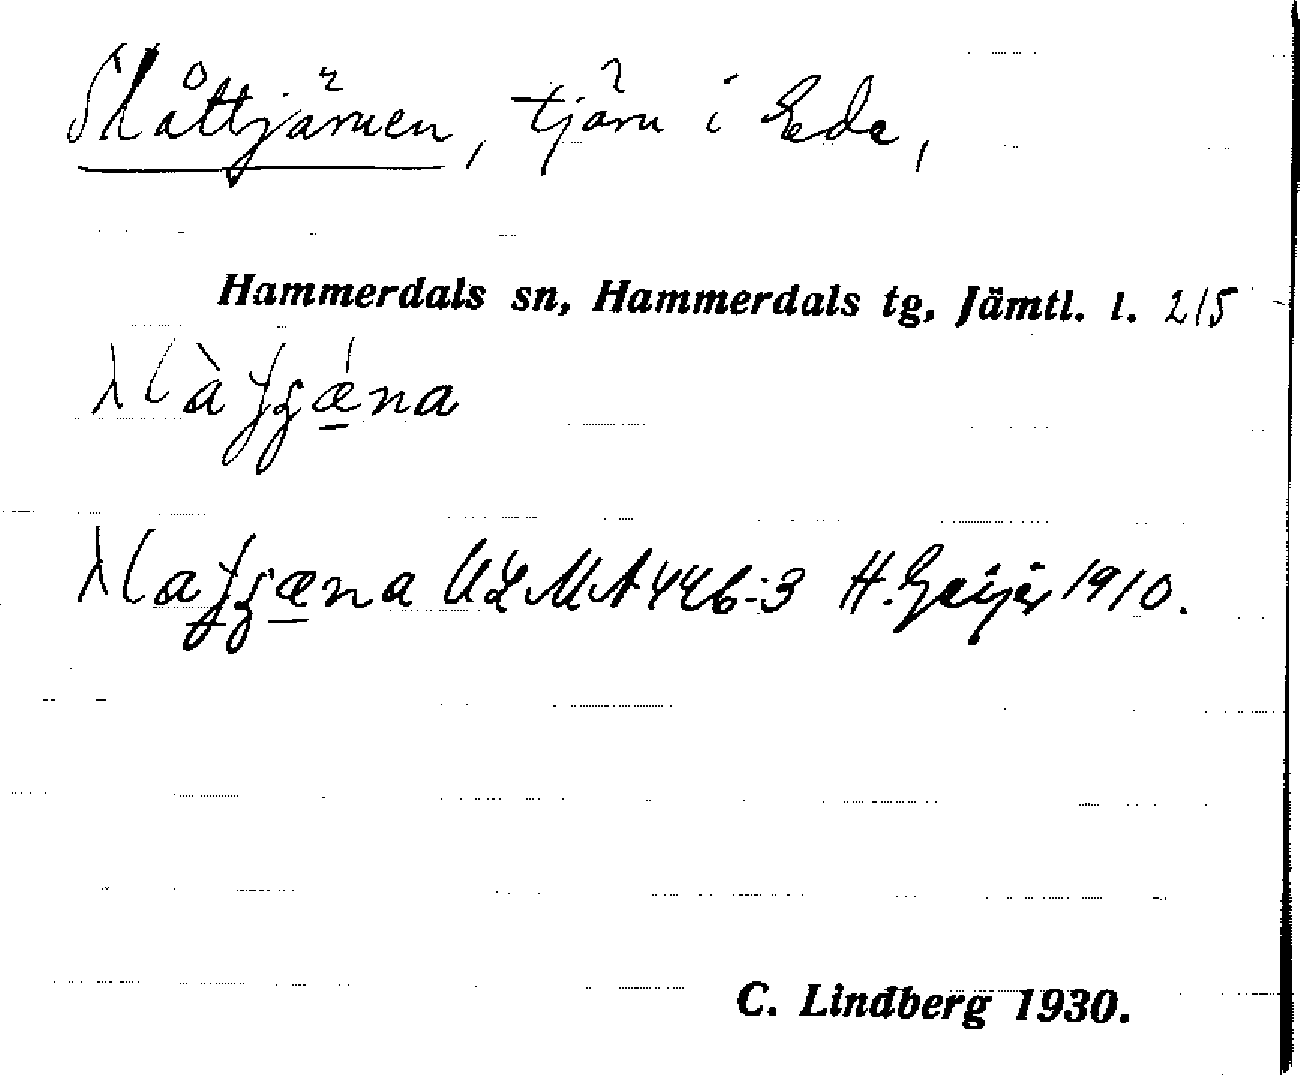 Slåttjärnen, tjärn i Ede,
Hammerdals sn, Hammerdals tg, Jämtl. l. 215
ULMA 446:3 H. Geijer 1910.
C. Lindberg 1930.